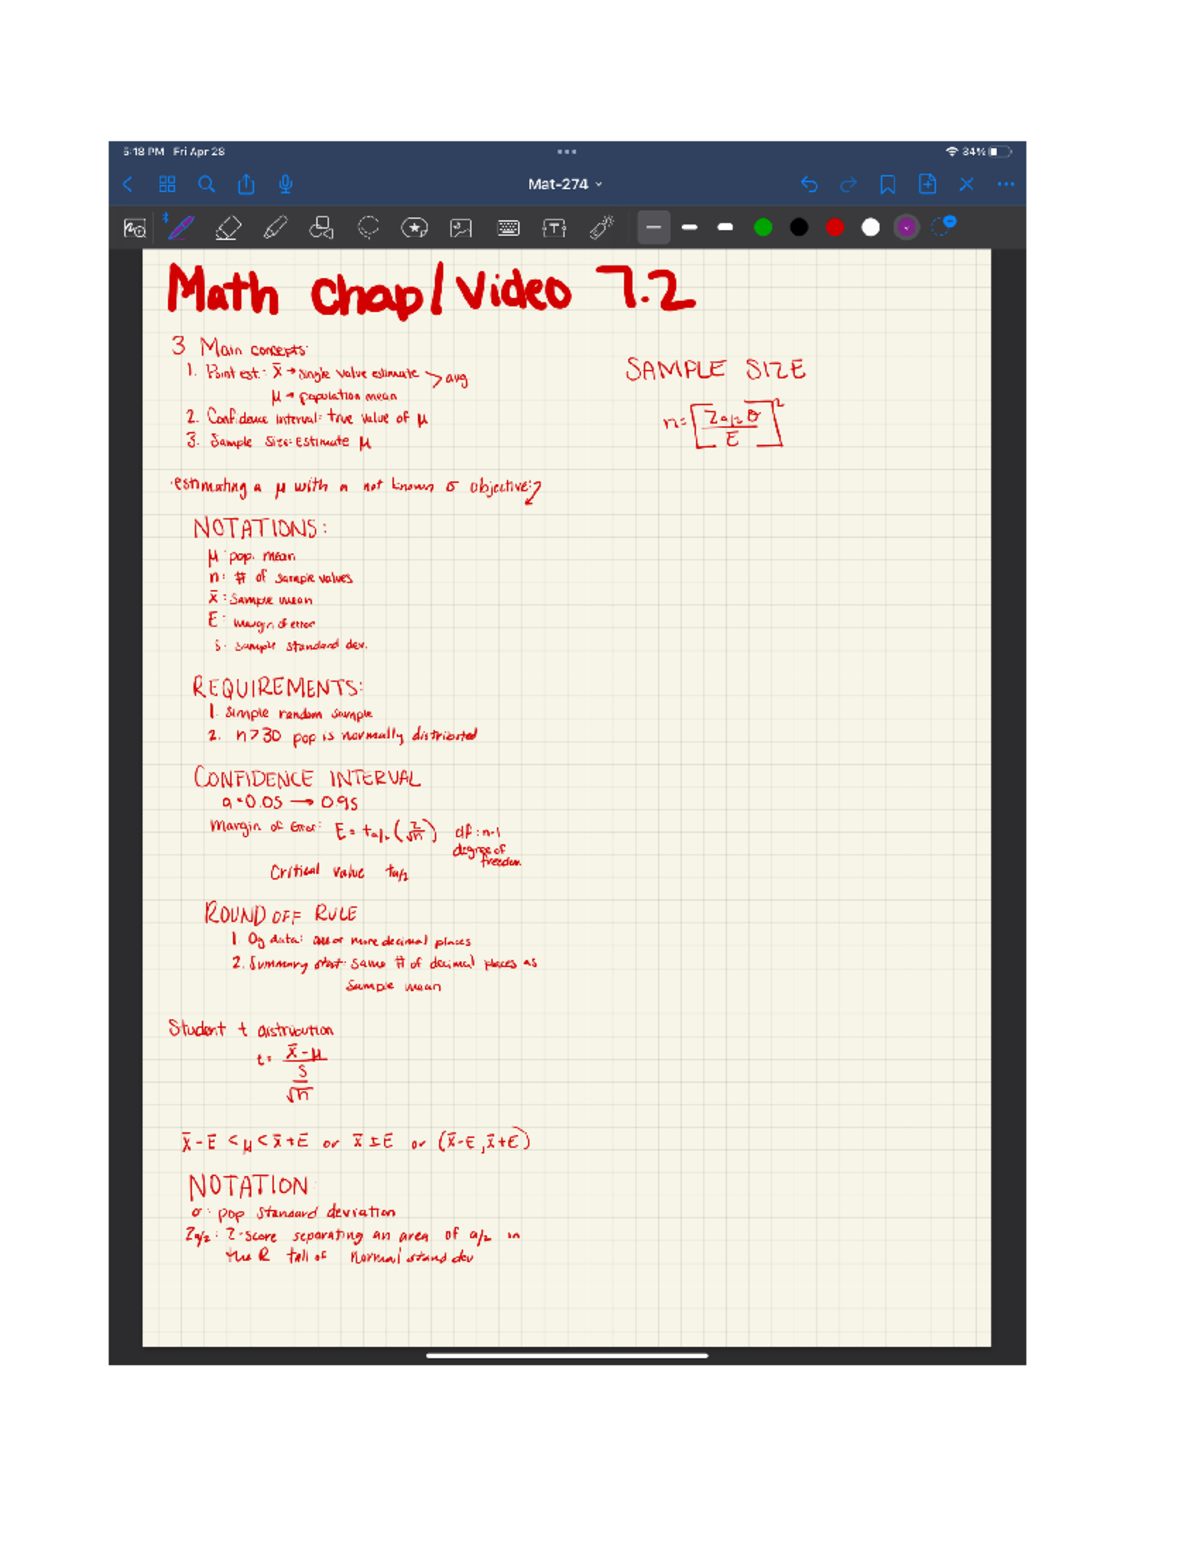 5:18 PM Fri Apr 28
34%
Mat-274
Math chap/Video 7.2
3 Main concepts:
1. Point est: x̄ → single value estimate > avg
μ → population mean
2. Confidence interval: true value of μ
3. Sample Size: Estimate μ
SAMPLE SIZE
n = [Zα/2 σ / E]²
·estimating a μ with a not known σ objective:
NOTATIONS:
μ: pop. mean
n: # of sample values
x̄: Sample mean
E: margin of error
s: sample standard dev.
REQUIREMENTS:
1. Simple random sample
2. n>30 pop is normally distributed
CONFIDENCE INTERVAL
a=0.05 → 0.95
Margin of Error: E = ta/2 (2/√n) df: n-1
degree of
freedom.
Critical value ta/2
ROUND OFF RULE
1. Og data: one or more decimal places
2. Summary stat: Same # of decimal places as
Sample mean
Student t distribution
t = x̄-μ / s/√n
x̄-E < μ < x̄+E or x̄±E or (x̄-E, x̄+E)
NOTATION:
σ: pop standard deviation
Za/2: Z-score separating an area of a/2 in
the R tail of normal stand dev